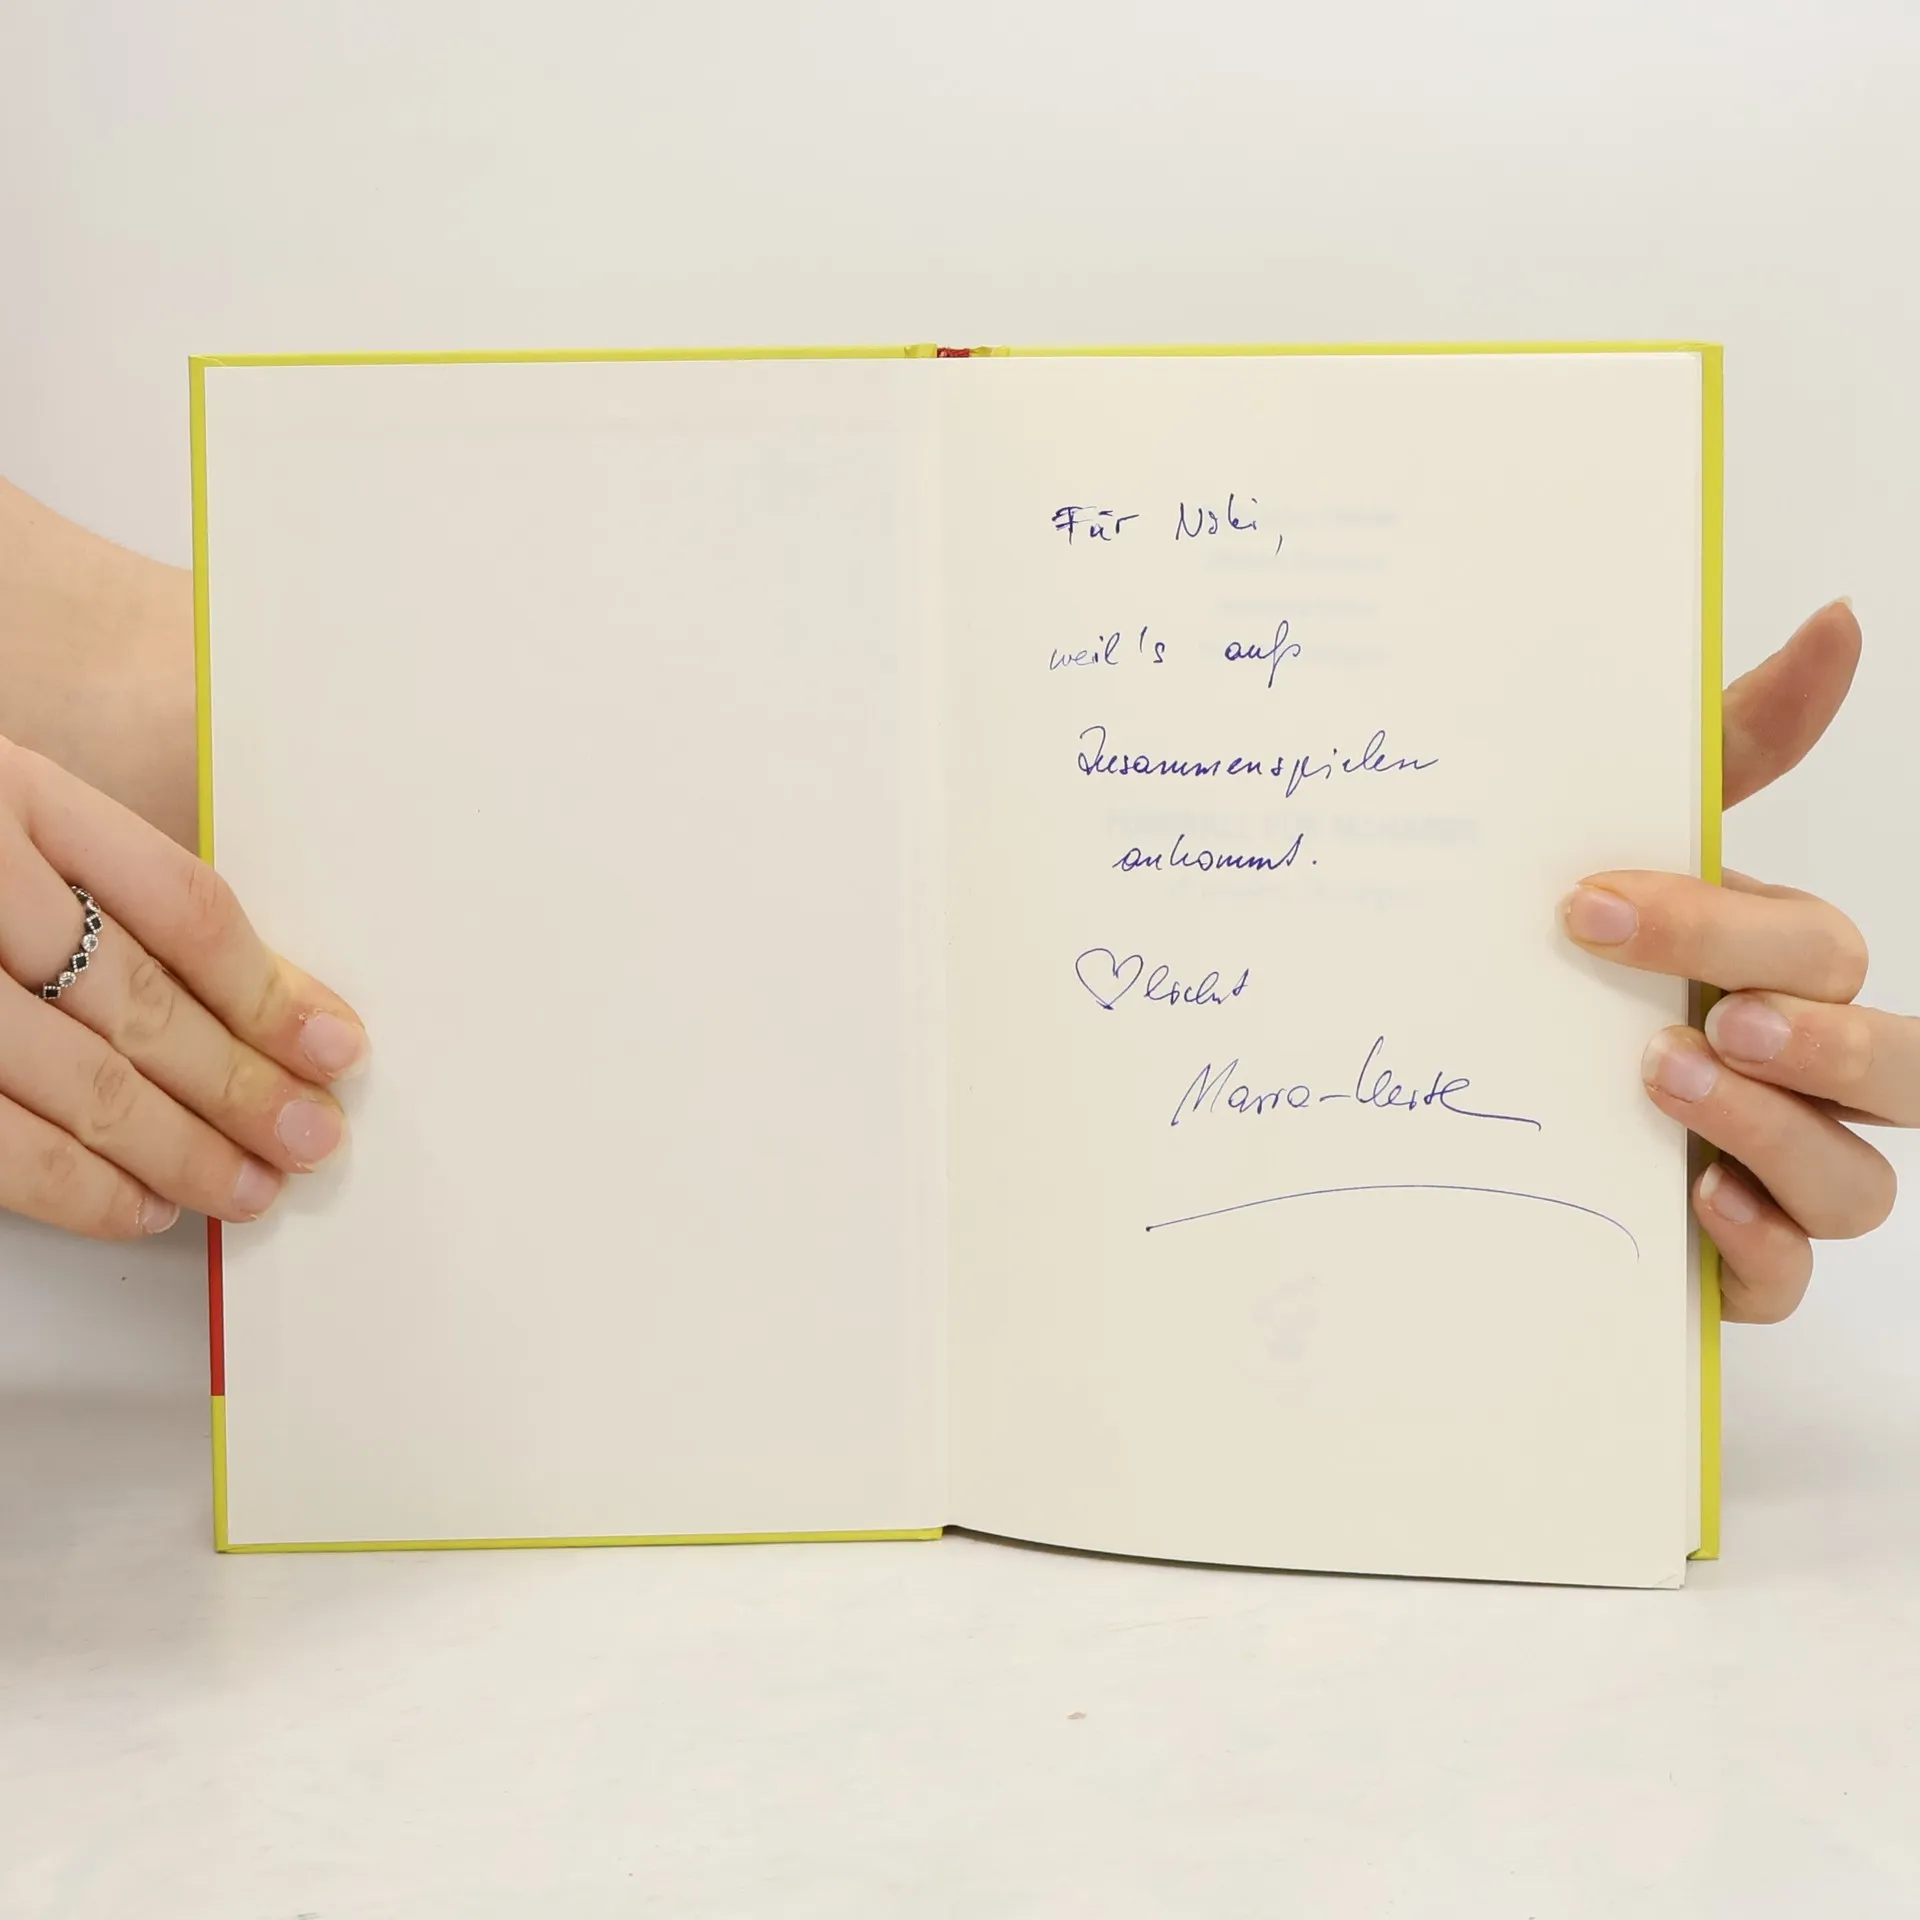 Für Niki,
weil's aufs
Zusammenspielen
ankommt.
♡lichst